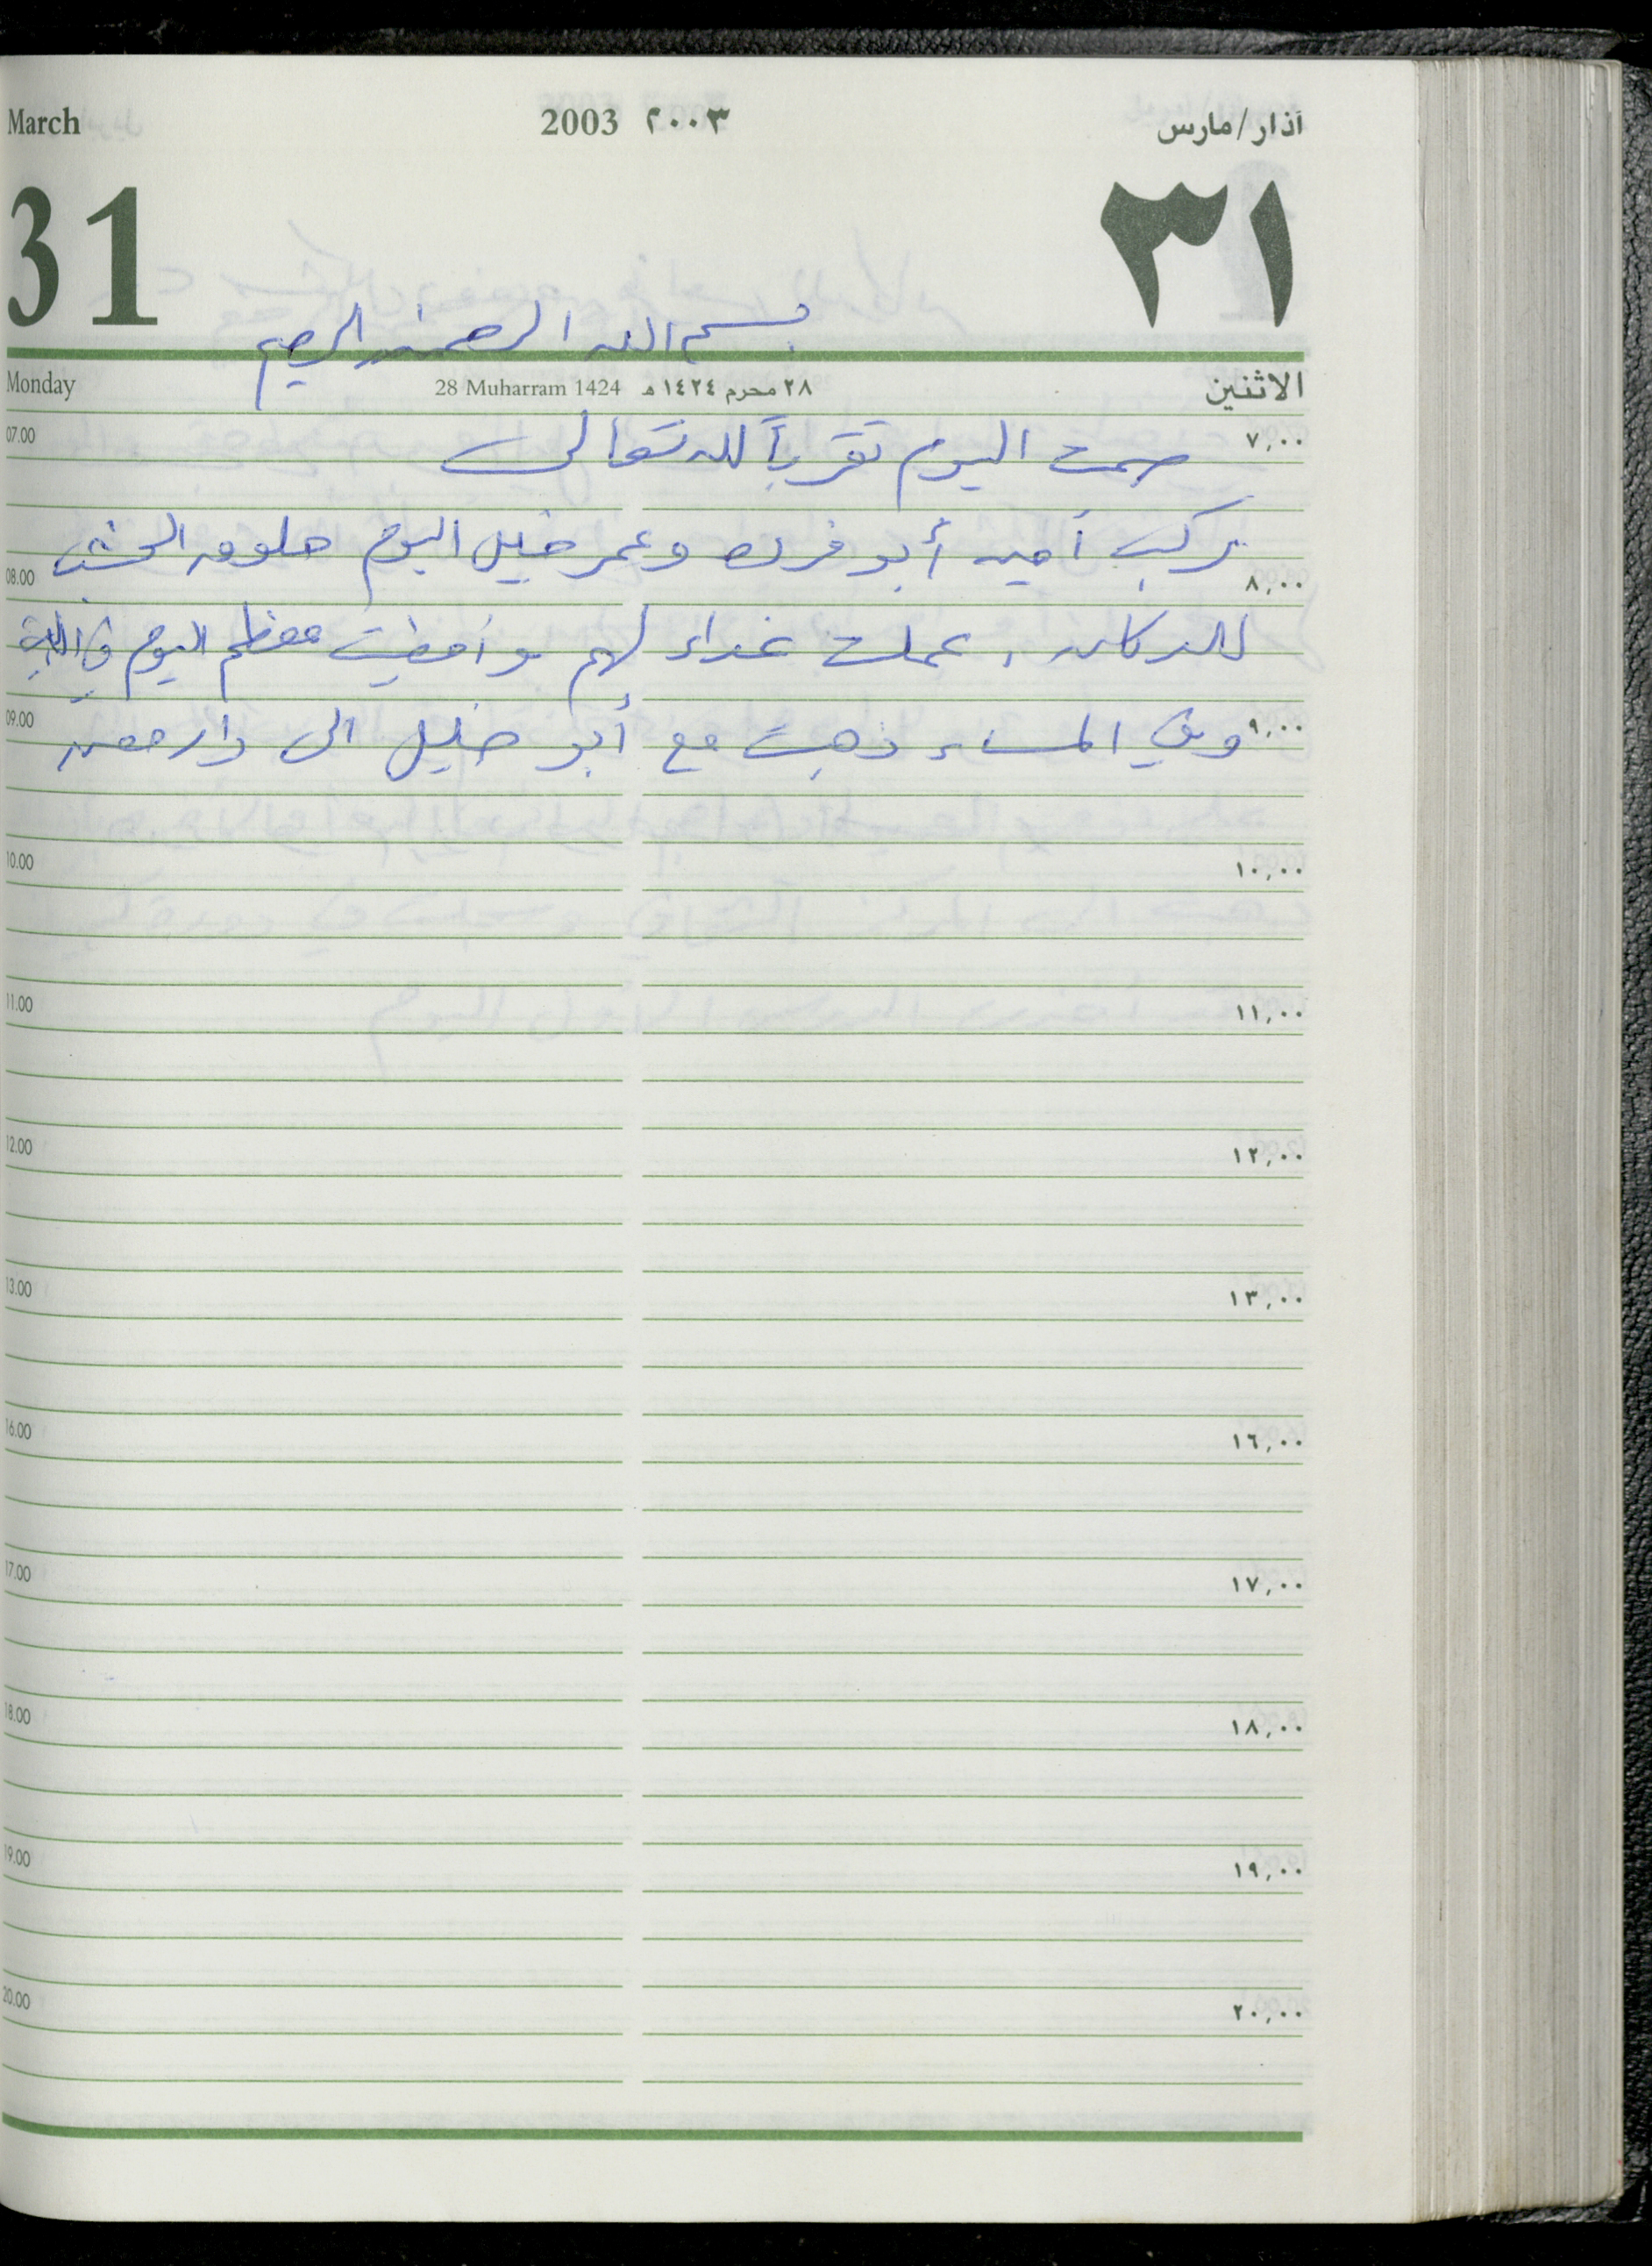 March 2003 ٢٠٠٣ آذار/مارس
31 ٣١
بسم الله الرحمن الرحيم
Monday 28 Muharram 1424 ٢٨ محرم ١٤٢٤ هـ الاثنين
07.00 ٧,٠٠
صمت اليوم تقرباً لله تعالى
ركب أمين أبو فرده وعمر خليل اليوم حلوق الخشب
08.00 ٨,٠٠
للدكان، عملت غداء لهم وأمضيت معظم اليوم في
09.00 ٩,٠٠
وفي المساء ذهبت مع أبو خليل الى دار معين
10.00 ١٠,٠٠
11.00 ١١,٠٠
12.00 ١٢,٠٠
13.00 ١٣,٠٠
16.00 ١٦,٠٠
17.00 ١٧,٠٠
18.00 ١٨,٠٠
19.00 ١٩,٠٠
20.00 ٢٠,٠٠